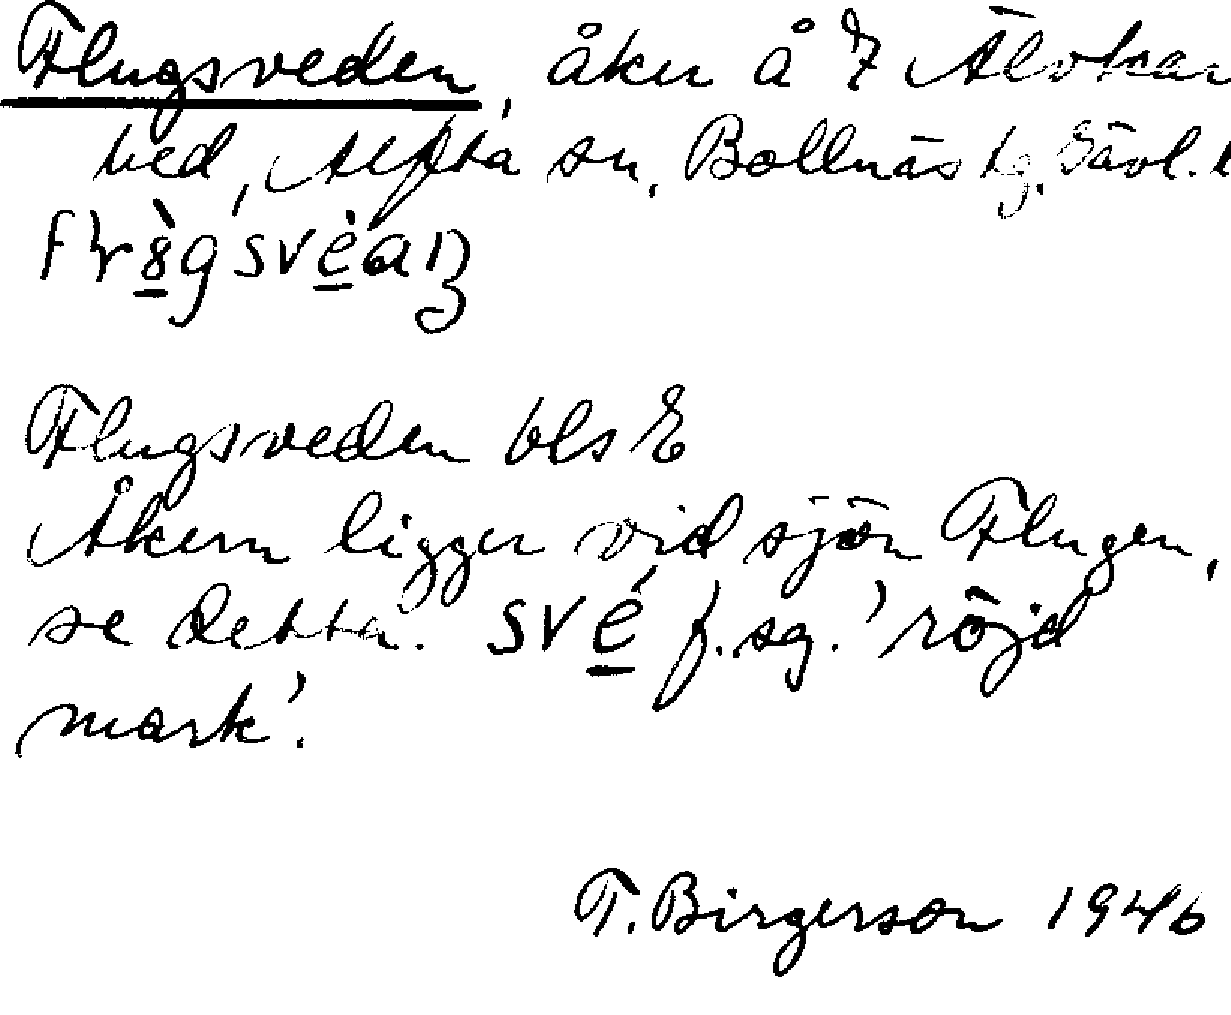 Flugsveden, åker å 7 Älvkar
hed, Alfta sn, Bollnäs tg, Gävl. l
Flugsveden bls E
Åkern ligger vid sjön Flugen,
se detta. své f. sg. 'röjd
mark'.
T. Birgerson 1946